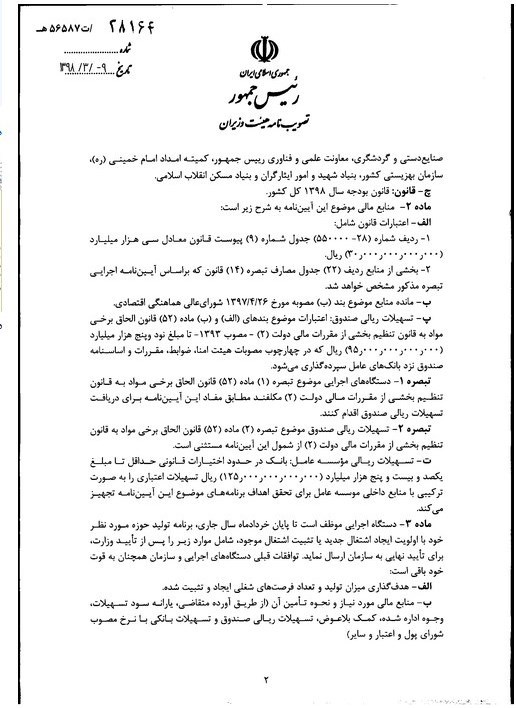 ۲۸۱۶۴ /ت۵۶۵۸۷هـ
شماره
تاریخ ۱۳۹۸/۳/۰۹
جمهوری اسلامی ایران
رئیس جمهور
تصویب نامه هیئت وزیران
صنایع‌دستی و گردشگری، معاونت علمی و فناوری رییس جمهور، کمیته امداد امام خمینی (ره)،
سازمان بهزیستی کشور، بنیاد شهید و امور ایثارگران و بنیاد مسکن انقلاب اسلامی.
چ- قانون: قانون بودجه سال ۱۳۹۸ کل کشور.
ماده ۲- منابع مالی موضوع این آیین‌نامه به شرح زیر است:
الف- اعتبارات قانون شامل:
۱- ردیف شماره (۲۸- ۵۵۰۰۰۰) جدول شماره (۹) پیوست قانون معادل سی هزار میلیارد
(۳۰٫۰۰۰٫۰۰۰٫۰۰۰٫۰۰۰) ریال.
۲- بخشی از منابع ردیف (۲۲) جدول مصارف تبصره (۱۴) قانون که براساس آیین‌نامه اجرایی
تبصره مذکور مشخص خواهد شد.
ب- مانده منابع موضوع بند (ب) مصوبه مورخ ۱۳۹۷/۴/۲۶ شورای‌عالی هماهنگی اقتصادی.
پ- تسهیلات ریالی صندوق: اعتبارات موضوع بندهای (الف) و (ب) ماده (۵۲) قانون الحاق برخی
مواد به قانون تنظیم بخشی از مقررات مالی دولت (۲) - مصوب ۱۳۹۳- تا مبلغ نود وپنج هزار میلیارد
(۹۵٫۰۰۰٫۰۰۰٫۰۰۰٫۰۰۰) ریال که در چهارچوب مصوبات هیئت امنا، ضوابط، مقررات و اساسنامه
صندوق نزد بانک‌های عامل سپرده‌گذاری می‌شود.
تبصره ۱- دستگاه‌های اجرایی موضوع تبصره (۱) ماده (۵۲) قانون الحاق برخی مواد به قانون
تنظیم بخشی از مقررات مالی دولت (۲) مکلفند مطابق مفاد این آیین‌نامه برای دریافت
تسهیلات ریالی صندوق اقدام کنند.
تبصره ۲- تسهیلات ریالی صندوق موضوع تبصره (۲) ماده (۵۲) قانون الحاق برخی مواد به قانون
تنظیم بخشی از مقررات مالی دولت (۲) از شمول این آیین‌نامه مستثنی است.
ت- تسهیلات ریالی مؤسسه عامل: بانک در حدود اختیارات قانونی حداقل تا مبلغ
یکصد و بیست و پنج هزار میلیارد (۱۲۵٫۰۰۰٫۰۰۰٫۰۰۰٫۰۰۰) ریال تسهیلات اعتباری را به صورت
ترکیبی با منابع داخلی موسسه عامل برای تحقق اهداف برنامه‌های موضوع این آیین‌نامه تجهیز
می‌کند.
ماده ۳- دستگاه اجرایی موظف است تا پایان خردادماه سال جاری، برنامه تولید حوزه مورد نظر
خود با اولویت ایجاد اشتغال جدید یا تثبیت اشتغال موجود، شامل موارد زیر را پس از تأیید وزارت،
برای تأیید نهایی به سازمان ارسال نماید. توافقات قبلی دستگاه‌های اجرایی و سازمان همچنان به قوت
خود باقی است:
الف- هدف‌گذاری میزان تولید و تعداد فرصت‌های شغلی ایجاد و تثبیت شده.
ب- منابع مالی مورد نیاز و نحوه تأمین آن (از طریق آورده متقاضی، یارانه سود تسهیلات،
وجوه اداره شده، کمک بلاعوض، تسهیلات ریالی صندوق و تسهیلات بانکی با نرخ مصوب
شورای پول و اعتبار و سایر)
۲